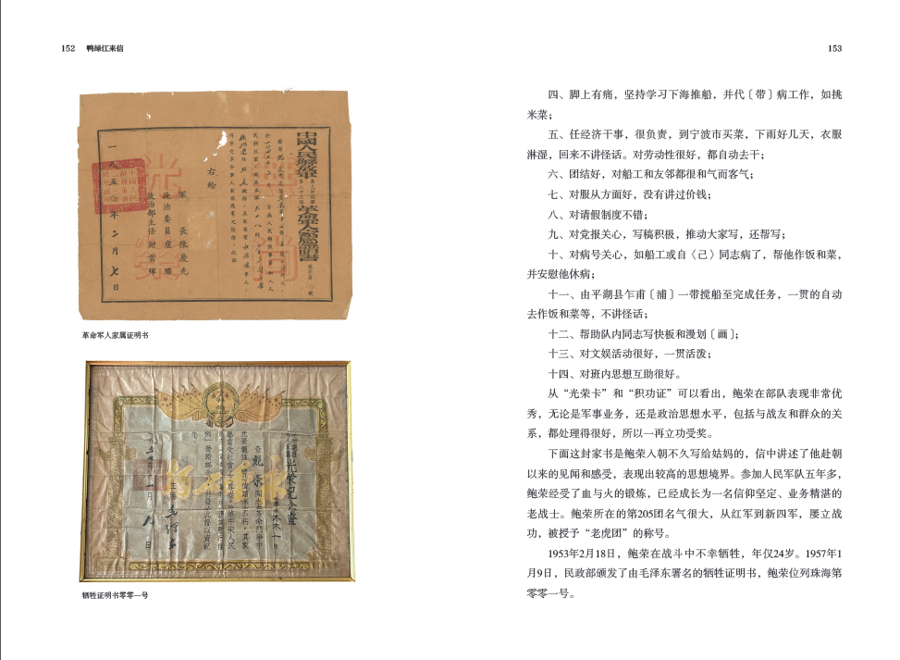 152 鸭绿江来信
中國人民解放軍
革命軍人家屬證明書
右给
軍長陳慶先
政治委員盧勝
政治部主任謝雲暉
一九五〇年二月七日
革命军人家属证明书
光榮紀念證
主席
一月八日
牺牲证明书零零一号
153
四、脚上有痛，坚持学习下海推船，并代〔带〕病工作，如挑
米菜；
五、任经济干事，很负责，到宁波市买菜，下雨好几天，衣服
淋湿，回来不讲怪话。对劳动性很好，都自动去干；
六、团结好，对船工和友邻都很和气而客气；
七、对服从方面好，没有讲过价钱；
八、对请假制度不错；
九、对党报关心，写稿积极，推动大家写，还帮写；
十、对病号关心，如船工或自〈己〉同志病了，帮他作饭和菜，
并安慰他休病；
十一、由平湖县乍甫〔浦〕一带搅船至完成任务，一贯的自动
去作饭和菜等，不讲怪话；
十二、帮助队内同志写快板和漫划〔画〕；
十三、对文娱活动很好，一贯活泼；
十四、对班内思想互助很好。
从“光荣卡”和“积功证”可以看出，鲍荣在部队表现非常优
秀，无论是军事业务，还是政治思想水平，包括与战友和群众的关
系，都处理得很好，所以一再立功受奖。
下面这封家书是鲍荣入朝不久写给姑妈的，信中讲述了他赴朝
以来的见闻和感受，表现出较高的思想境界。参加人民军队五年多，
鲍荣经受了血与火的锻炼，已经成长为一名信仰坚定、业务精湛的
老战士。鲍荣所在的第205团名气很大，从红军到新四军，屡立战
功，被授予“老虎团”的称号。
1953年2月18日，鲍荣在战斗中不幸牺牲，年仅24岁。1957年1
月9日，民政部颁发了由毛泽东署名的牺牲证明书，鲍荣位列珠海第
零零一号。